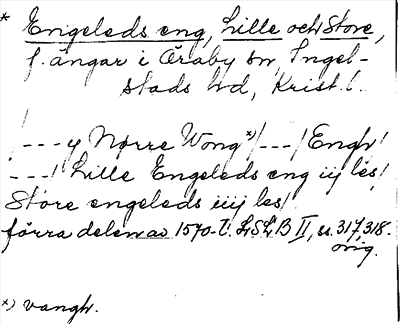 * Engeleds eng, Lille och Store,
f. ängar i Öraby sn, Ingel-
stads hd, Krist. l.
/---y Nørre Wong*)/---/Engh/
---/ Lille Engeleds eng iij les/
Store engeleds iiij les/
förra delen av 1570-t. LSLB II, s. 317, 318.
orig.
*) vangh.